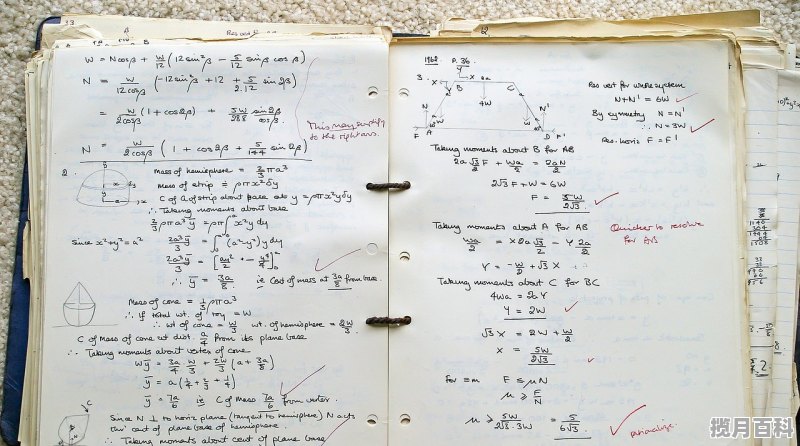 33
W = Ncosβ + W/12 (12 sin²β - 5/12 sinβ cosβ)
N = W/12cosβ (-12sin²β + 12 + 5/2.12 sin 2β)
= W/2cosβ (1 + cos2β) + 5W/288 sin2β/cosβ.
This may simplify
to the right ans.
N = W/2cosβ (1 + cos2β + 5/144 sin2β)
2.
Mass of hemisphere = 2/3 πa³
Mass of strip = ρπx²δy
C of G of strip about base as y = ρπx²yδy
∴ Taking moments about base
2/3 ρπa³ȳ = ∫ρπx²y dy
Since x²+y²=a²
2a³ȳ/3 = ∫(a²-y²)y dy
2a³ȳ/3 = [ay²/2 - y⁴/4]
∴ ȳ = 3a/8 ie Cent of mass at 3a/8 from base.
Mass of cone = 1/3 ρπa³
∴ If total wt. of toy = W
∴ wt of cone = W/3 wt. of hemisphere = 2W/3
C of Mass of cone at dist. a/4 from its plane base
∴ Taking moments about vertex of cone
Wȳ = 3a/4 W/3 + 2W/3 (a + 3a/8)
ȳ = a(1/4 + 2/3 + 1/4)
ȳ = 7a/6 ie C of mass 7a/6 from vertex.
Since N ⊥ to horiz plane (tangent to hemisphere) N acts
thro' cent of plane base of hemisphere.
∴ Taking moments about cent of plane base
1968 P. 36
3.
Res vert for whole system
N+N' = 6W
By symmetry N = N'
∴ N = 3W
Res. horiz F = F'
Taking moments about B for AB
2a√3/2 F + Wa/2 = 2aN/2
2√3F + W = 6W
F = 5W/2√3
Taking moments about A for AB
Quicker to resolve
for AB
Wa/2 = X2a√3/2 - Y2a/2
Y = -W/2 + √3X
Taking moments about C for BC
4Wa = 2aY
Y = 2W
√3X = 2W + W/2
X = 5W/2√3
for =m F ≤ μN
μ ≥ F/N
μ ≥ 5W/2√3.3W = 5/6√3
rationalize.
揽月百科